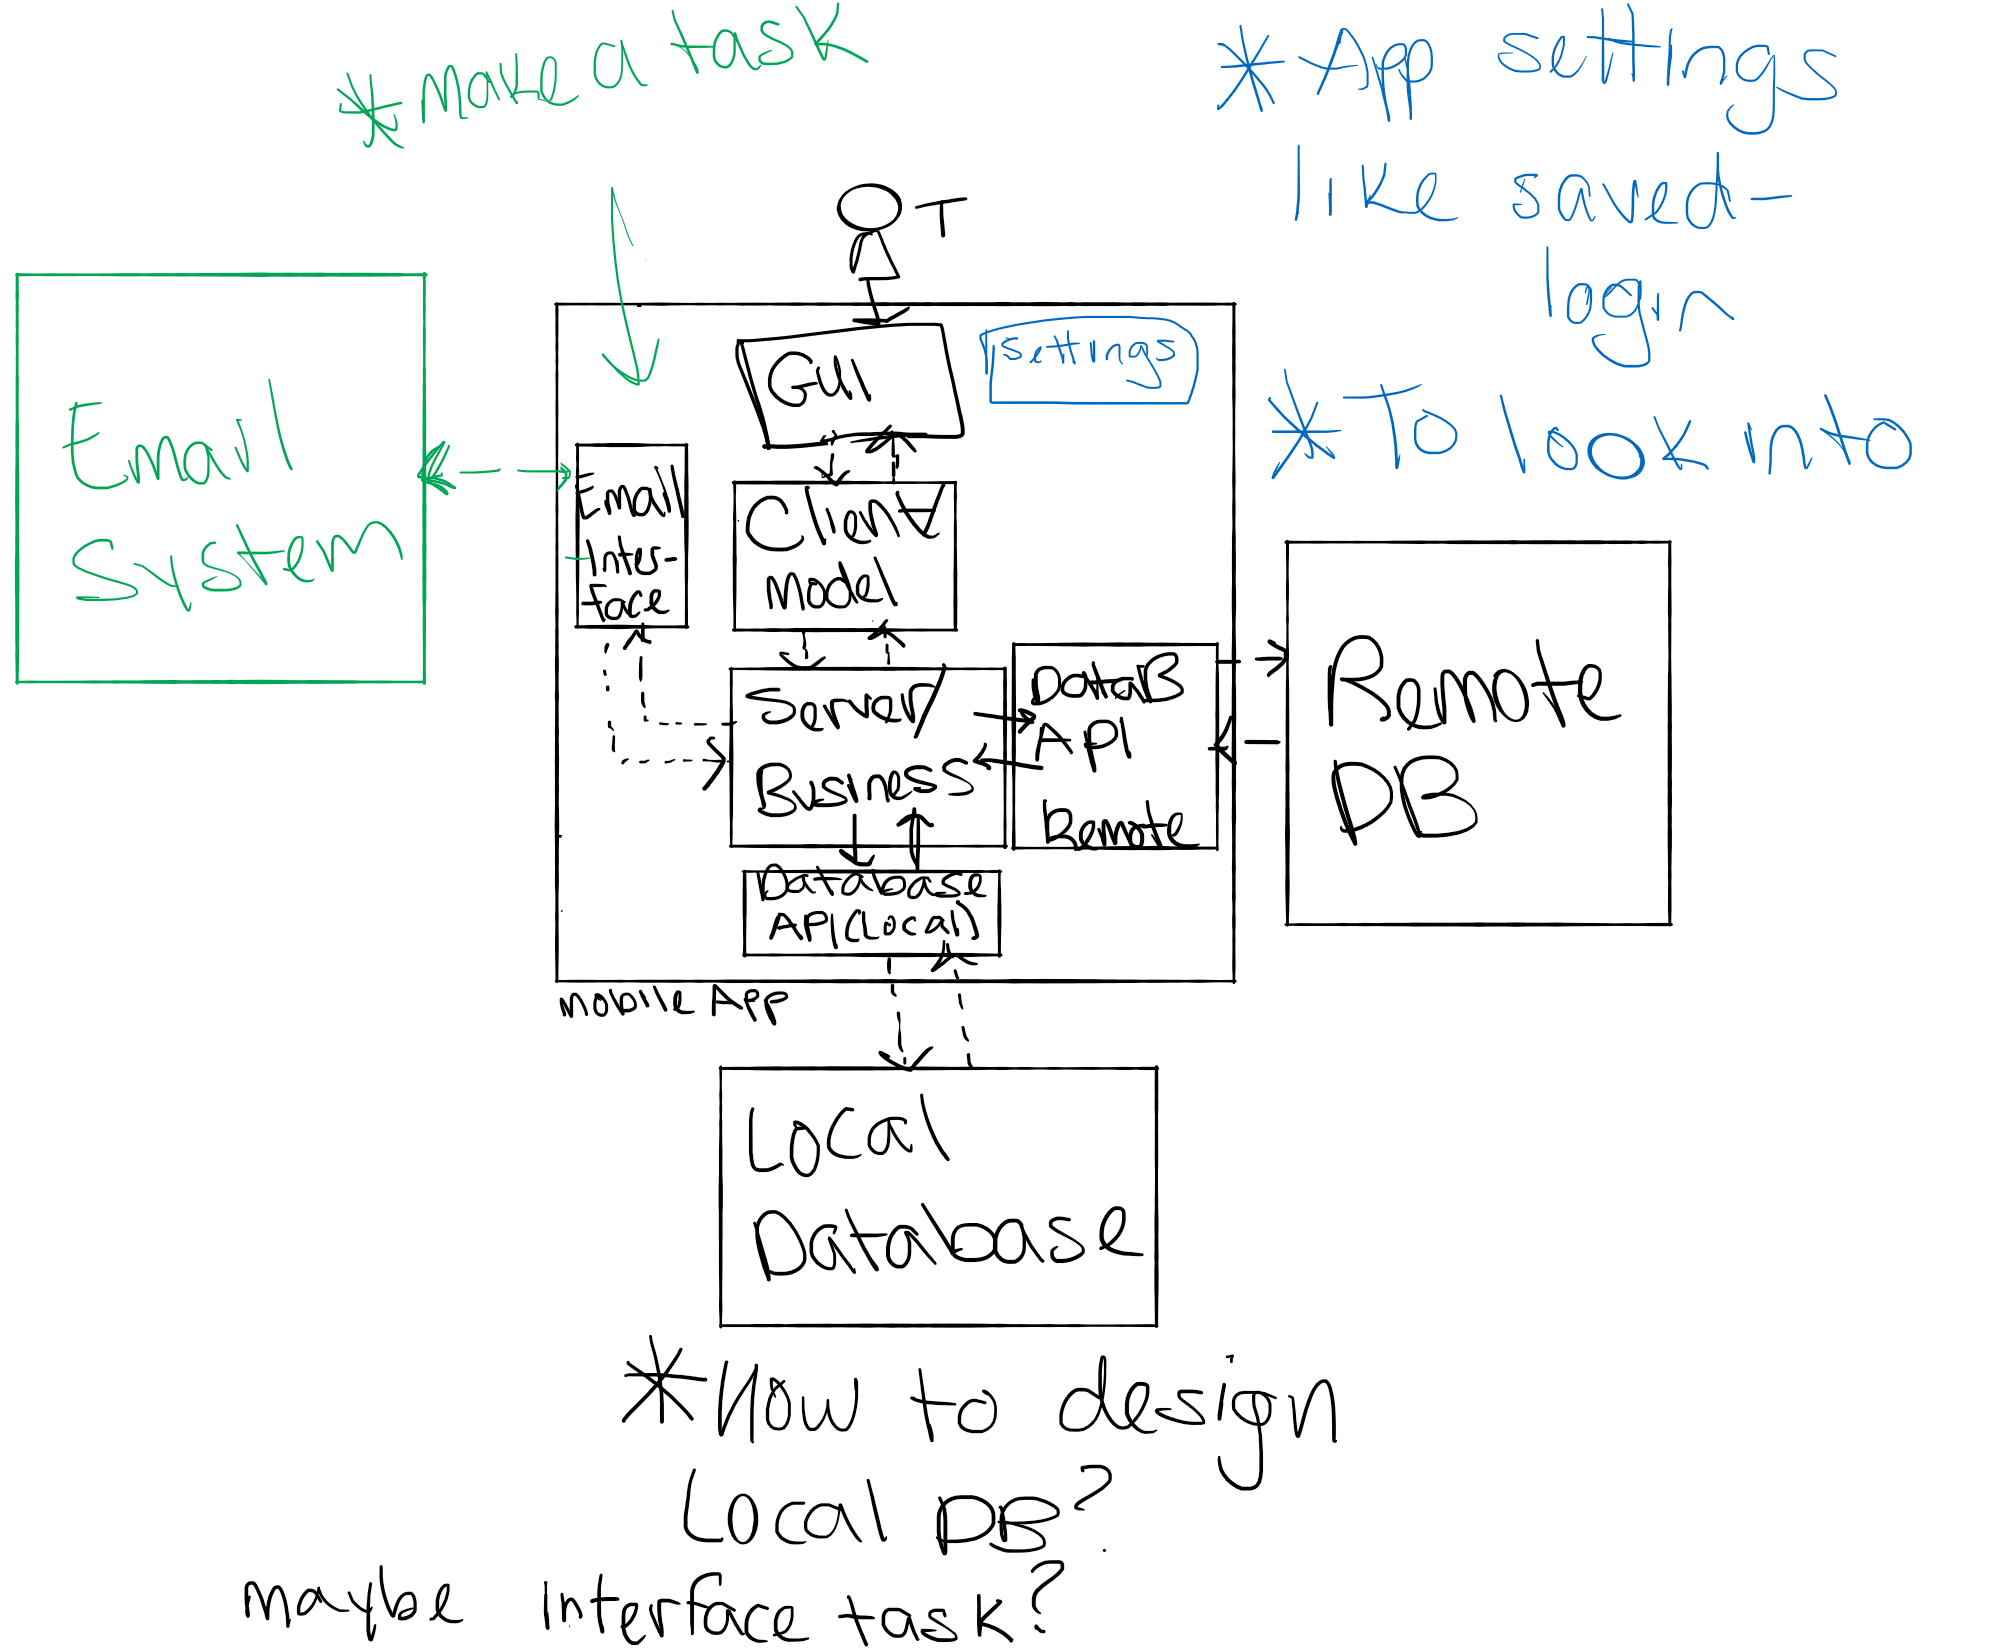 *make a task
*App settings
like saved-
login
*To look into
T
GUI
settings
Email
System
Email
Inter-
face
Client
Model
Server/
Business
DataB
API
Remote
Remote
DB
Database
API(Local)
mobile App
Local
Database
*How to design
Local DB?
maybe interface task?